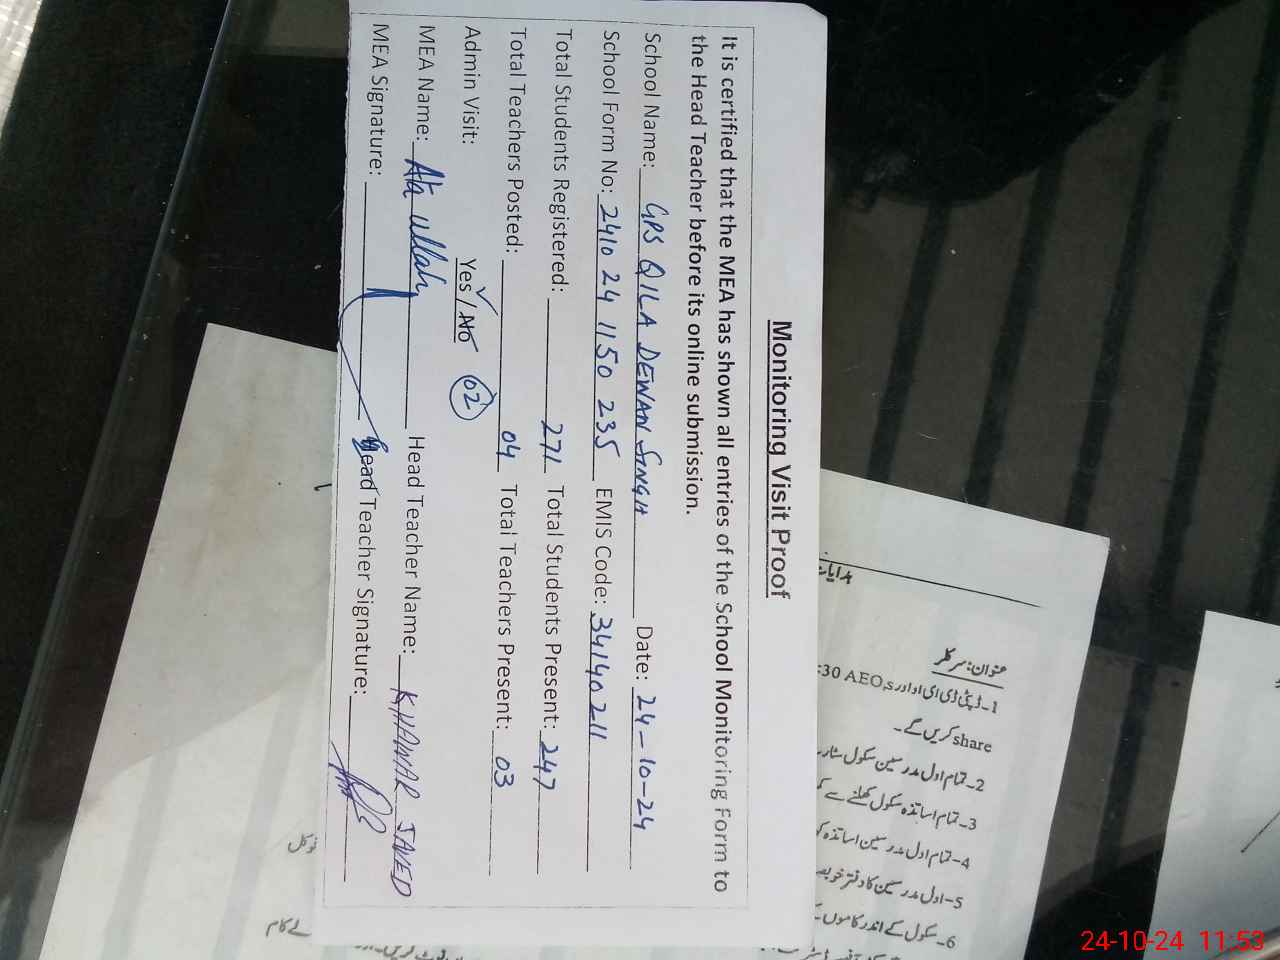 Monitoring Visit Proof
It is certified that the MEA has shown all entries of the School Monitoring Form to
the Head Teacher before its online submission.
School Name: GPS QILA DEWAN SINGH Date: 24-10-24
School Form No: 2410 24 1150 235 EMIS Code: 34140211
Total Students Registered: 271 Total Students Present: 247
Total Teachers Posted: 04 Total Teachers Present: 03
Admin Visit: Yes / No 02
MEA Name: Ata ullah Head Teacher Name: KHAWAR JAVED
MEA Signature: Head Teacher Signature:
ہدایات
عنوان: سرکلر
1۔ڈپٹی ڈی ای اوز اور AEO,s :30
share کریں گے۔
2۔تمام اول مدرسین سکول سٹار
3۔تمام اساتذہ سکول کھلنے سے
4۔تمام اول مدرسین اساتذہ کو
5۔اول مدرسین کا دفتر خوبصو
6۔سکول کے اندر کاموں کے
24-10-24 11:53